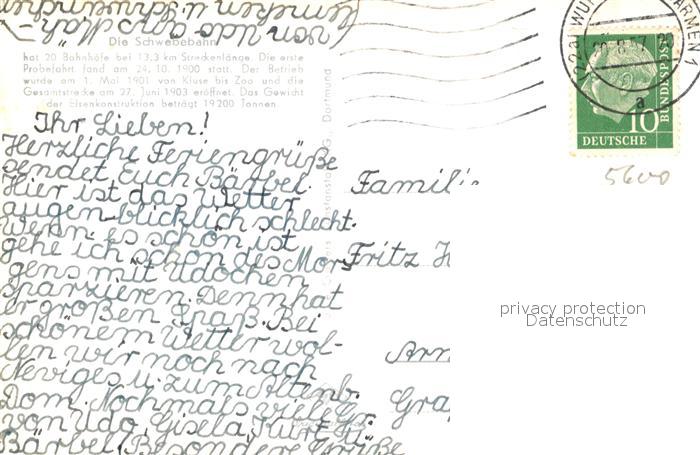 Die Schwebebahn
hat 20 Bahnhöfe bei 13,3 km Streckenlänge. Die erste
Probefahrt fand am 24. 10. 1900 statt. Der Betrieb
wurde am 1. Mai 1901 von Kluse bis Zoo und die
Gesamtstrecke am 27. Juni 1903 eröffnet. Das Gewicht
der Eisenkonstruktion beträgt 19 200 Tonnen.
Ihr Lieben!
Herzliche Feriengrüße
sendet Euch Bärbel.
Hier ist das Wetter
augenblicklich schlecht.
Wenn es schön ist
gehe ich schon des Mor-
gens mit Udochen
sparzieren. Denn hat
er großen Spaß. Bei
schönem Wetter wol-
len wir noch nach
Neviges u. zum Altenb.
Dom. Nochmals viele Gr.
von Udo, Gisela, Kurt u.
Bärbel. Besondere Grüße
von Udo ans
Famili
Fritz H
Arn
Gra
DEUTSCHE
BUNDESPOST
10
a
5600
Dortmund
privacy protection
Datenschutz